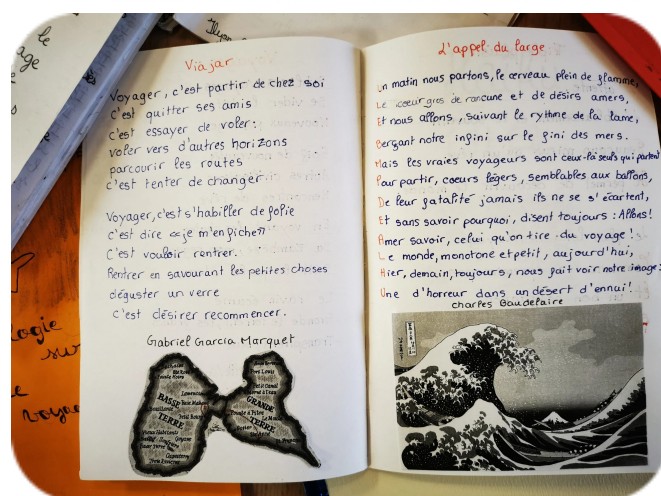 le
age
Viajar
Voyager, c'est partir de chez soi
C'est quitter ses amis
c'est essayer de voler:
voler vers d'autres horizons
parcourir les routes
c'est tenter de changer
Voyager, c'est s'habiller de folie
c'est dire «je m'en fiche»
C'est vouloir rentrer.
Rentrer en savourant les petites choses
déguster un verre
c'est désirer recommencer.
Gabriel García Marquet
BASSE
TERRE
GRANDE
TERRE
Port Louis
Petit Canal
Baie Mahault
Petit Bourg
Vieux Habitants
Goyave
Trois Rivières
L'appel du large
Un matin nous partons, le cerveau plein de flamme,
Le coeur gros de rancune et de désirs amers,
Et nous allons, suivant le rythme de la lame,
Berçant notre infini sur le fini des mers.
Mais les vraies voyageurs sont ceux-là seuls qui partent
Pour partir, coeurs légers, semblables aux ballons,
De leur fatalité jamais ils ne se s'écartent,
Et sans savoir pourquoi, disent toujours: Allons!
Amer savoir, celui qu'on tire du voyage!
Le monde, monotone et petit, aujourd'hui,
Hier, demain, toujours, nous fait voir notre image:
Une d'horreur dans un désert d'ennui!
charles Baudelaire
logie
sur
voyage